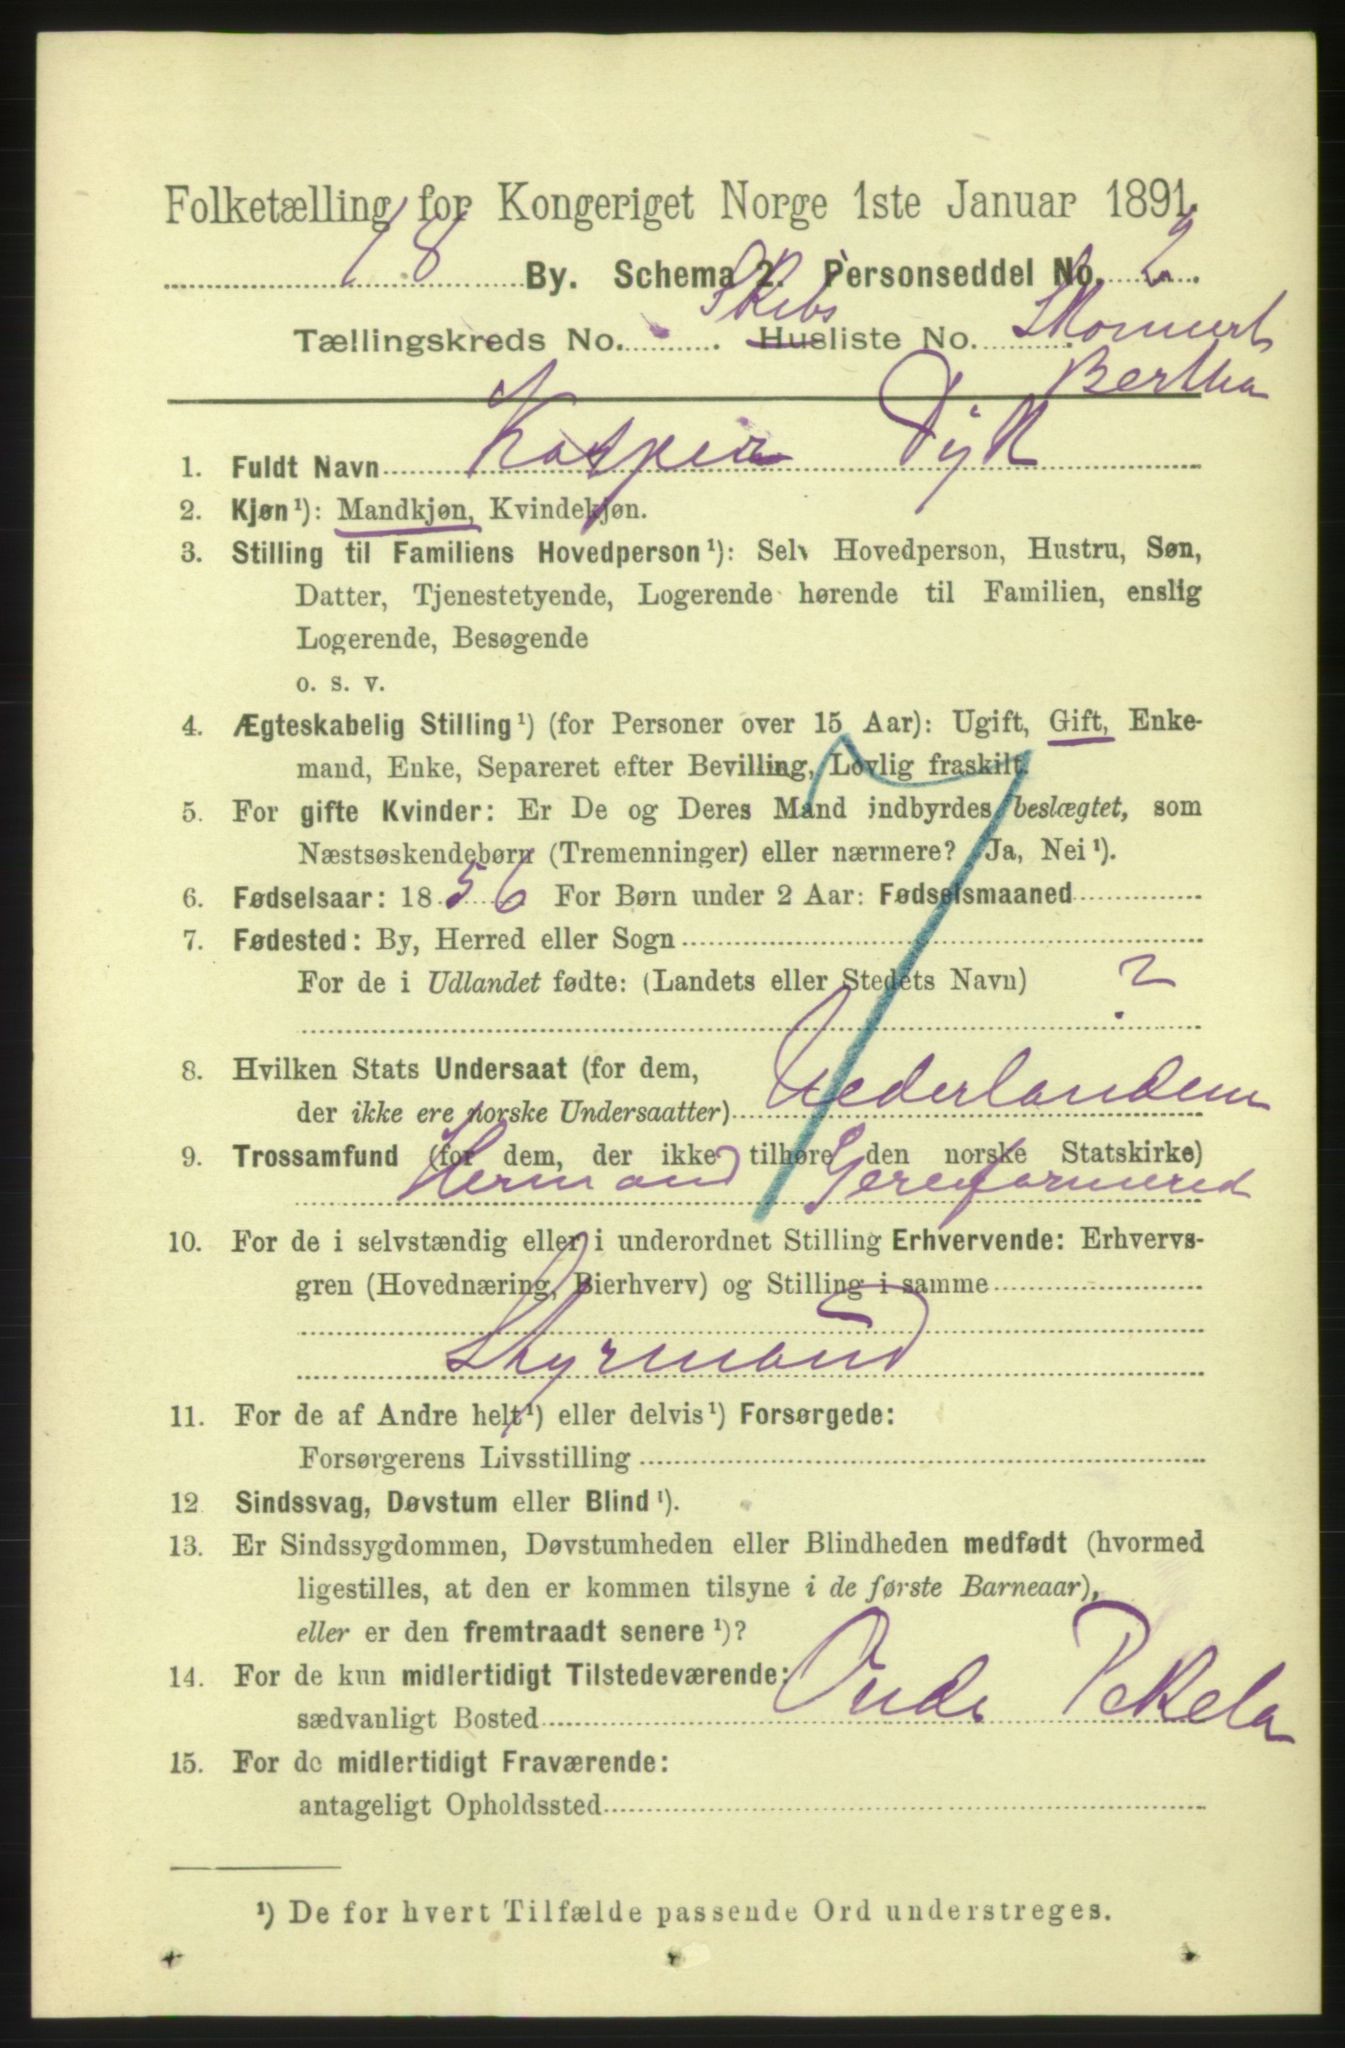 Folketælling for Kongeriget Norge 1ste Januar 1891.
18 By. Schema 2. Personseddel No. 2.
Tællingskreds No. . Skibs Husliste No. Skonnert
Bertha
1. Fuldt Navn Kasper Dijk
2. Kjøn¹): Mandkjøn, Kvindekjøn.
3. Stilling til Familiens Hovedperson¹): Selv Hovedperson, Hustru, Søn,
Datter, Tjenestetyende, Logerende hørende til Familien, enslig
Logerende, Besøgende
o. s. v.
4. Ægteskabelig Stilling¹) (for Personer over 15 Aar): Ugift, Gift, Enke-
mand, Enke, Separeret efter Bevilling, Lovlig fraskilt.
5. For gifte Kvinder: Er De og Deres Mand indbyrdes beslægtet, som
Næstsøskendebørn (Tremenninger) eller nærmere? Ja, Nei¹).
6. Fødselsaar: 1856 For Børn under 2 Aar: Fødselsmaaned
7. Fødested: By, Herred eller Sogn
For de i Udlandet fødte: (Landets eller Stedets Navn) ?
8. Hvilken Stats Undersaat (for dem,
der ikke ere norske Undersaatter) Nederlandene
9. Trossamfund (for dem, der ikke tilhøre den norske Statskirke)
10. For de i selvstændig eller i underordnet Stilling Erhvervende: Erhvervs-
gren (Hovednæring, Bierhverv) og Stilling i samme
Styrmand
11. For de af Andre helt¹) eller delvis¹) Forsørgede:
Forsørgerens Livsstilling
12 Sindssvag, Døvstum eller Blind¹).
13. Er Sindssygdommen, Døvstumheden eller Blindheden medfødt (hvormed
ligestilles, at den er kommen tilsyne i de første Barneaar),
eller er den fremtraadt senere¹)?
14. For de kun midlertidigt Tilstedeværende:
sædvanligt Bosted Oude Pekela
15. For de midlertidigt Fraværende:
antageligt Opholdssted
¹) De for hvert Tilfælde passende Ord understreges.